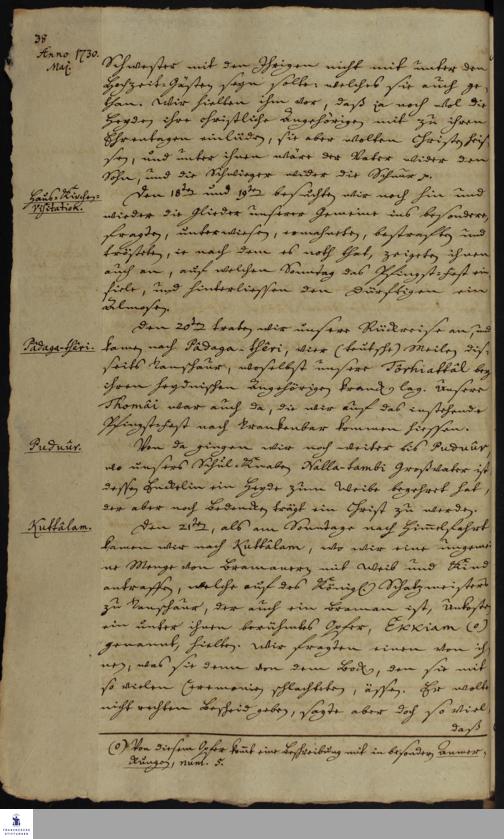 38
Anno 1730.
Maj.
Schwester mit den Ihrigen nicht mit unter den
Hochzeit-Gästen seyn solte: welches sie auch ge-
than. Wir hielten ihm vor, daß ja noch wol die
Heyden ihre christliche Angehörigen mit zu ihren
Ehrentagen einlüden, sie aber wolten Christen heis-
sen, und unter ihnen wäre der Vater wider den
Sohn, und die Schwieger wider die Schnur
Haus-Kirchen-
Visitation.
Den 18ten und 19ten besuchten wir noch hin und
wieder die Glieder unserer Gemeine ins besondere,
fragten, unterwiesen, ermahneten, bestraften und
trösteten, ie nach dem es noth that, zeigten ihnen
auch an, auf welchen Sonntag das Pfingst-Fest ein
fiele, und hinterliessen den Dürftigen ein
Almosen.
Den 20ten traten wir unsere Rückreise an, und
Pádaga-chêri.
kamen nach Pádaga-chêri, vier (teutsche) Meilen dis-
seits Tanschaur, woselbst unsere Torhiattâl bey
ihren heydnischen Angehörigen kranck lag. Unsere
Thomái war auch da, die wir auf das instehende
Pfingst-Fest nach Tranckenbar kommen hiessen.
Puduûr.
Von da gingen wir noch weiter bis Puduûr,
wo unsers Schul-Knaben Nalla-tambi Großvater ist
dessen Enckelin ein Heyde zum Weibe begehret hat,
der aber noch Bedencken trägt ein Christ zu werden.
Kuttâlam.
Den 21ten, als am Sonntage nach Himmelfahrt
kamen wir nach Kuttâlam, wo wir eine ungemei
ne Menge von Bramanern mit Weib und Kind
antraffen, welche auf des Königl. Schatzmeisters
zu Tanschaur, der auch ein Braman ist, Unkosten
ein unter ihnen berühmtes Opfer, Ekkiam (o)
genannt, hielten. Wir fragten einen von ih-
nen, was sie denn von dem Bock, den sie mit
so vielen Ceremonien schlachteten, ässen. Er wolte
nicht rechten Bescheid geben, sagte aber doch so viel
daß
(o) Von diesem Opfer komt eine Beschreibung mit in besondern Anmer-
kungen, num. 5.
FRANCKESCHE
STIFTUNGEN